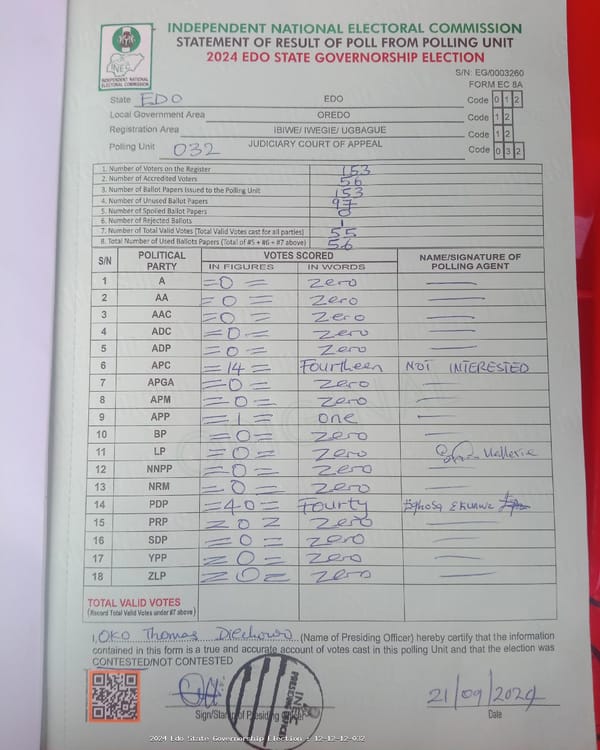 INDEPENDENT NATIONAL ELECTORAL COMMISSION
STATEMENT OF RESULT OF POLL FROM POLLING UNIT
2024 EDO STATE GOVERNORSHIP ELECTION
INEC
INDEPENDENT NATIONAL ELECTORAL COMMISSION
S/N: EG/0003260
FORM EC 8A
State EDO EDO Code 0 1 2
Local Government Area OREDO Code 1 2
Registration Area IBIWE/ IWEGIE/ UGBAGUE Code 1 2
Polling Unit 032 JUDICIARY COURT OF APPEAL Code 0 3 2
1. Number of Voters on the Register 153
2. Number of Accredited Voters 56
3. Number of Ballot Papers Issued to the Polling Unit 153
4. Number of Unused Ballot Papers 97
5. Number of Spoiled Ballot Papers 0
6. Number of Rejected Ballots 1
7. Number of Total Valid Votes (Total Valid Votes cast for all parties) 55
8. Total Number of Used Ballots Papers (Total of #5 + #6 + #7 above) 56
S/N POLITICAL PARTY VOTES SCORED NAME/SIGNATURE OF POLLING AGENT
IN FIGURES IN WORDS
1 A =0= Zero
2 AA =0= Zero
3 AAC =0= Zero
4 ADC =0= Zero
5 ADP =0= Zero
6 APC =14= Fourtheen NOT INTERESTED
7 APGA =0= Zero
8 APM =0= Zero
9 APP =1= one
10 BP =0= Zero
11 LP =0= Zero
12 NNPP =0= Zero
13 NRM =0= Zero
14 PDP =40= Fourty
15 PRP =0= Zero
16 SDP =0= Zero
17 YPP =0= Zero
18 ZLP =0= Zero
TOTAL VALID VOTES
(Record Total Valid Votes under #7 above)
I, OKO Thomas (Name of Presiding Officer) hereby certify that the information
contained in this form is a true and accurate account of votes cast in this polling Unit and that the election was
CONTESTED/NOT CONTESTED
21/09/2024
Sign/Stamp of Presiding Date
2024 Edo State Governorship Election - 12-12-12-032